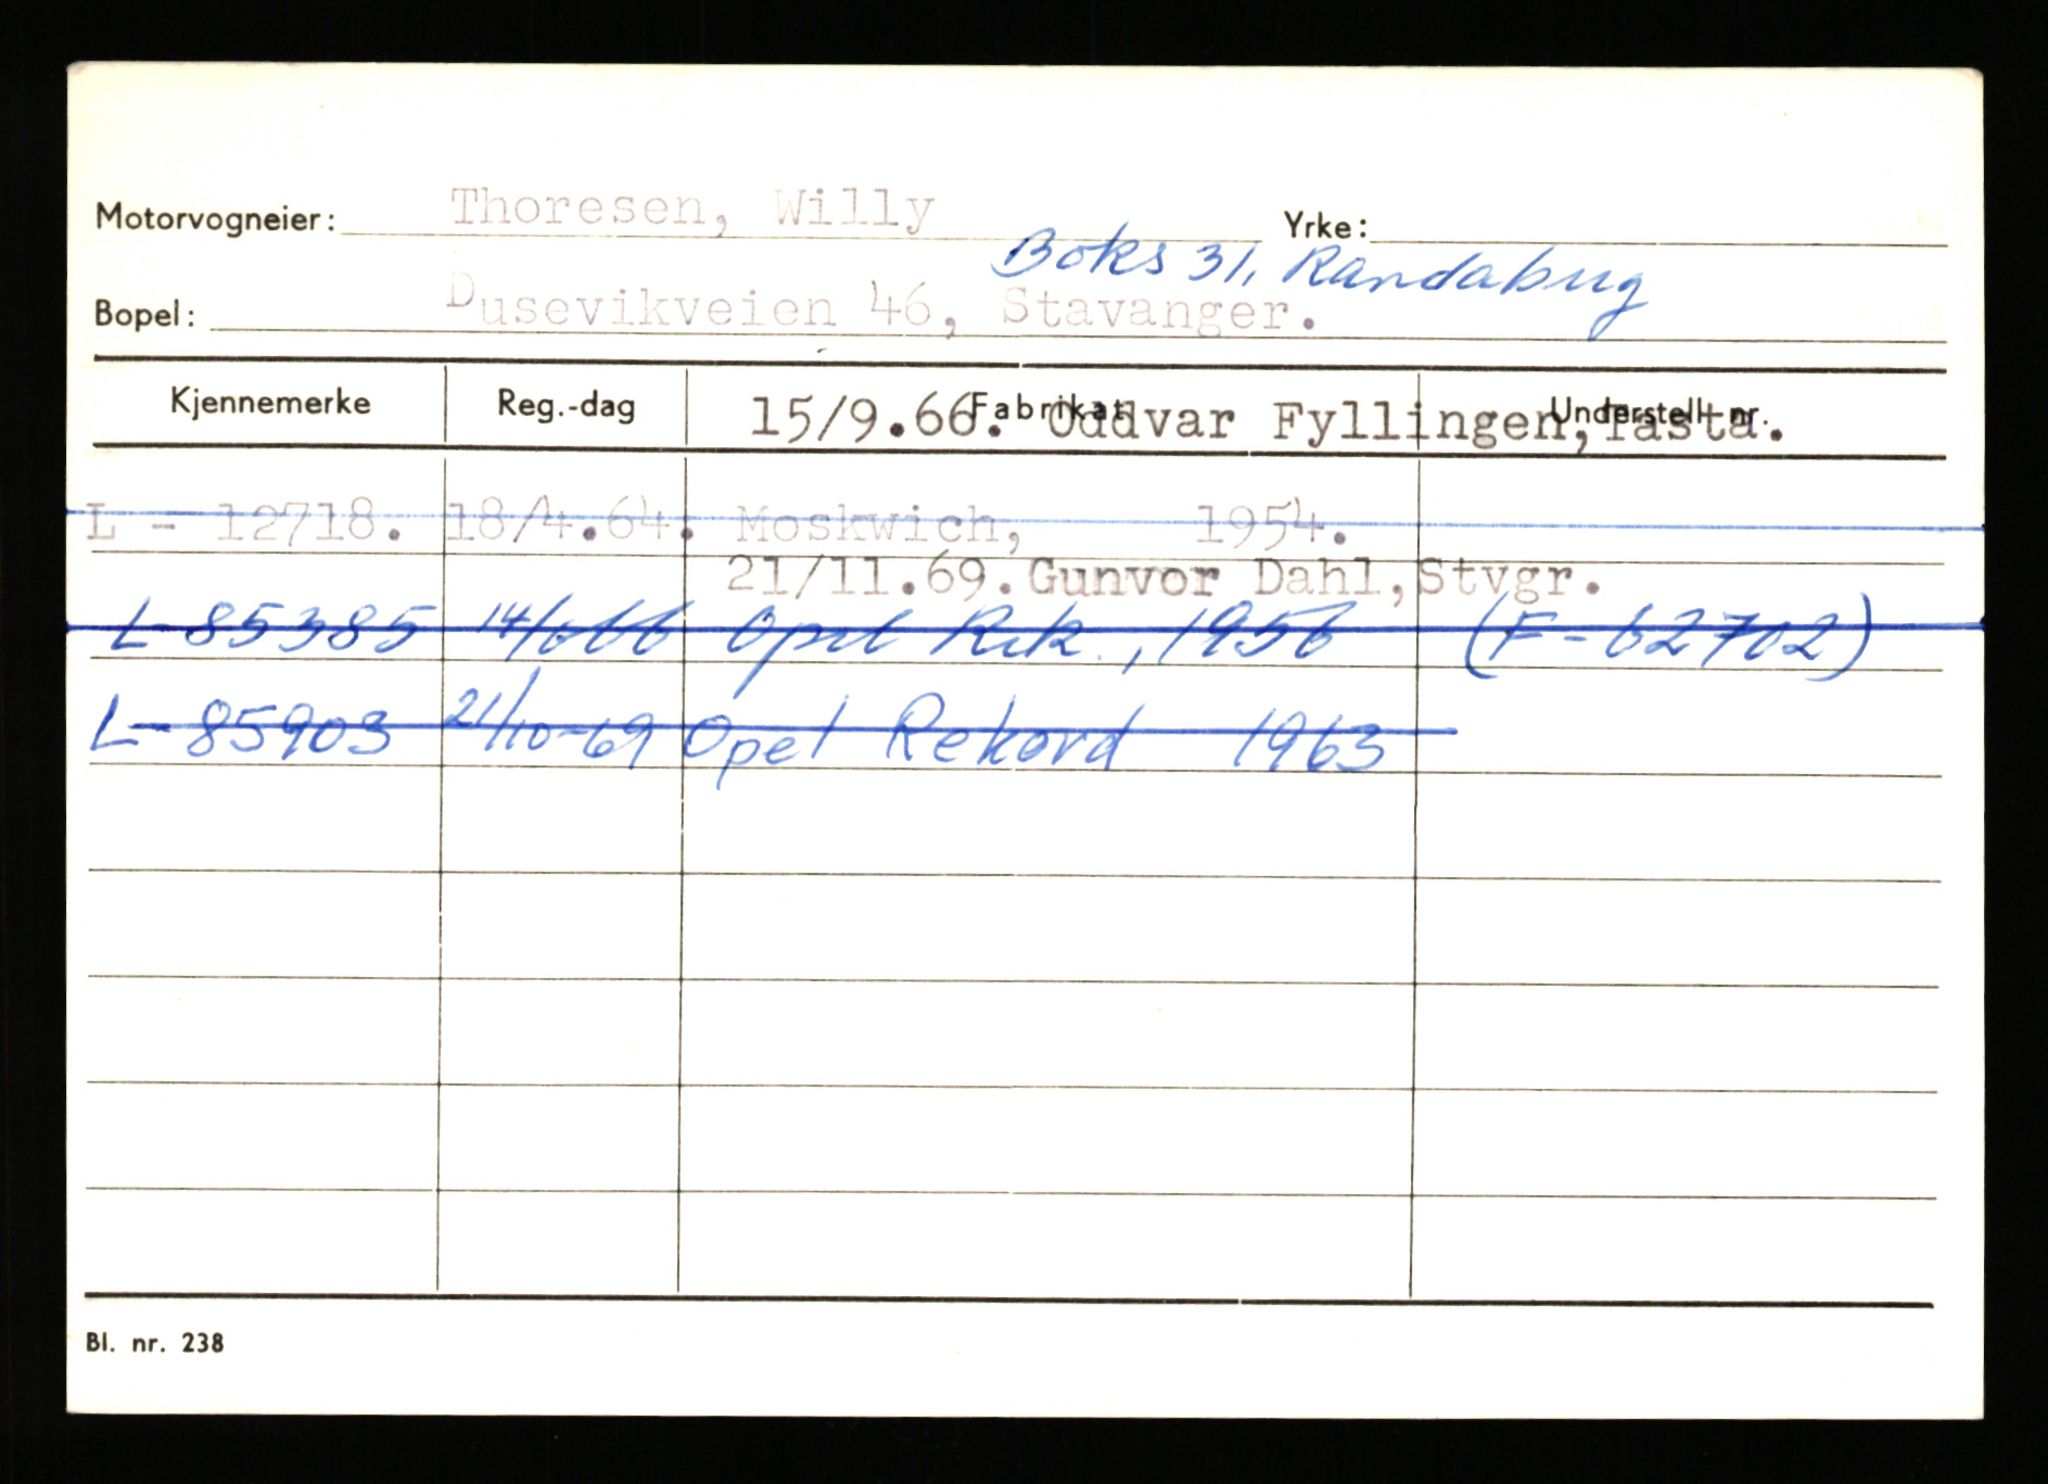 Motorvogneier: Thoresen, Willy Yrke:
Boks 31, Randaburg
Bopel: Dusevikveien 46, Stavanger.
Kjennemerke Reg.-dag Fabrikat Understell nr.
15/9.66. Oddvar Fyllingen, Tasta.
L - 12718. 18/4.64. Moskwich, 1954.
21/11.69. Gunvor Dahl, Stvgr.
L-85385 Opel Rek., 1956 (F-62702)
L-85903 21/10-69 Opel Rekord 1963
Bl. nr. 238